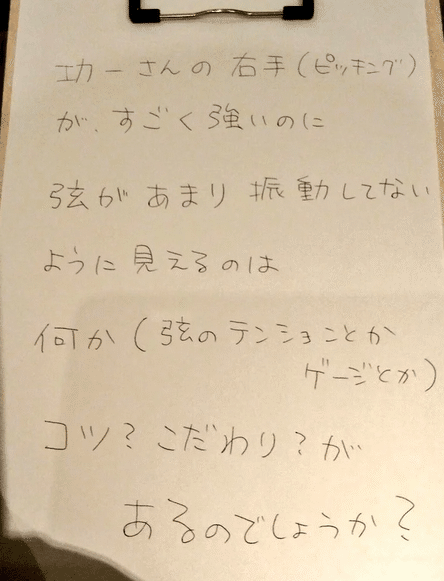 功一さんの右手(ピッキング)
が、すごく強いのに
弦があまり振動してない
ように見えるのは
何か(弦のテンションとか
ゲージとか)
コツ?こだわり?が
あるのでしょうか?